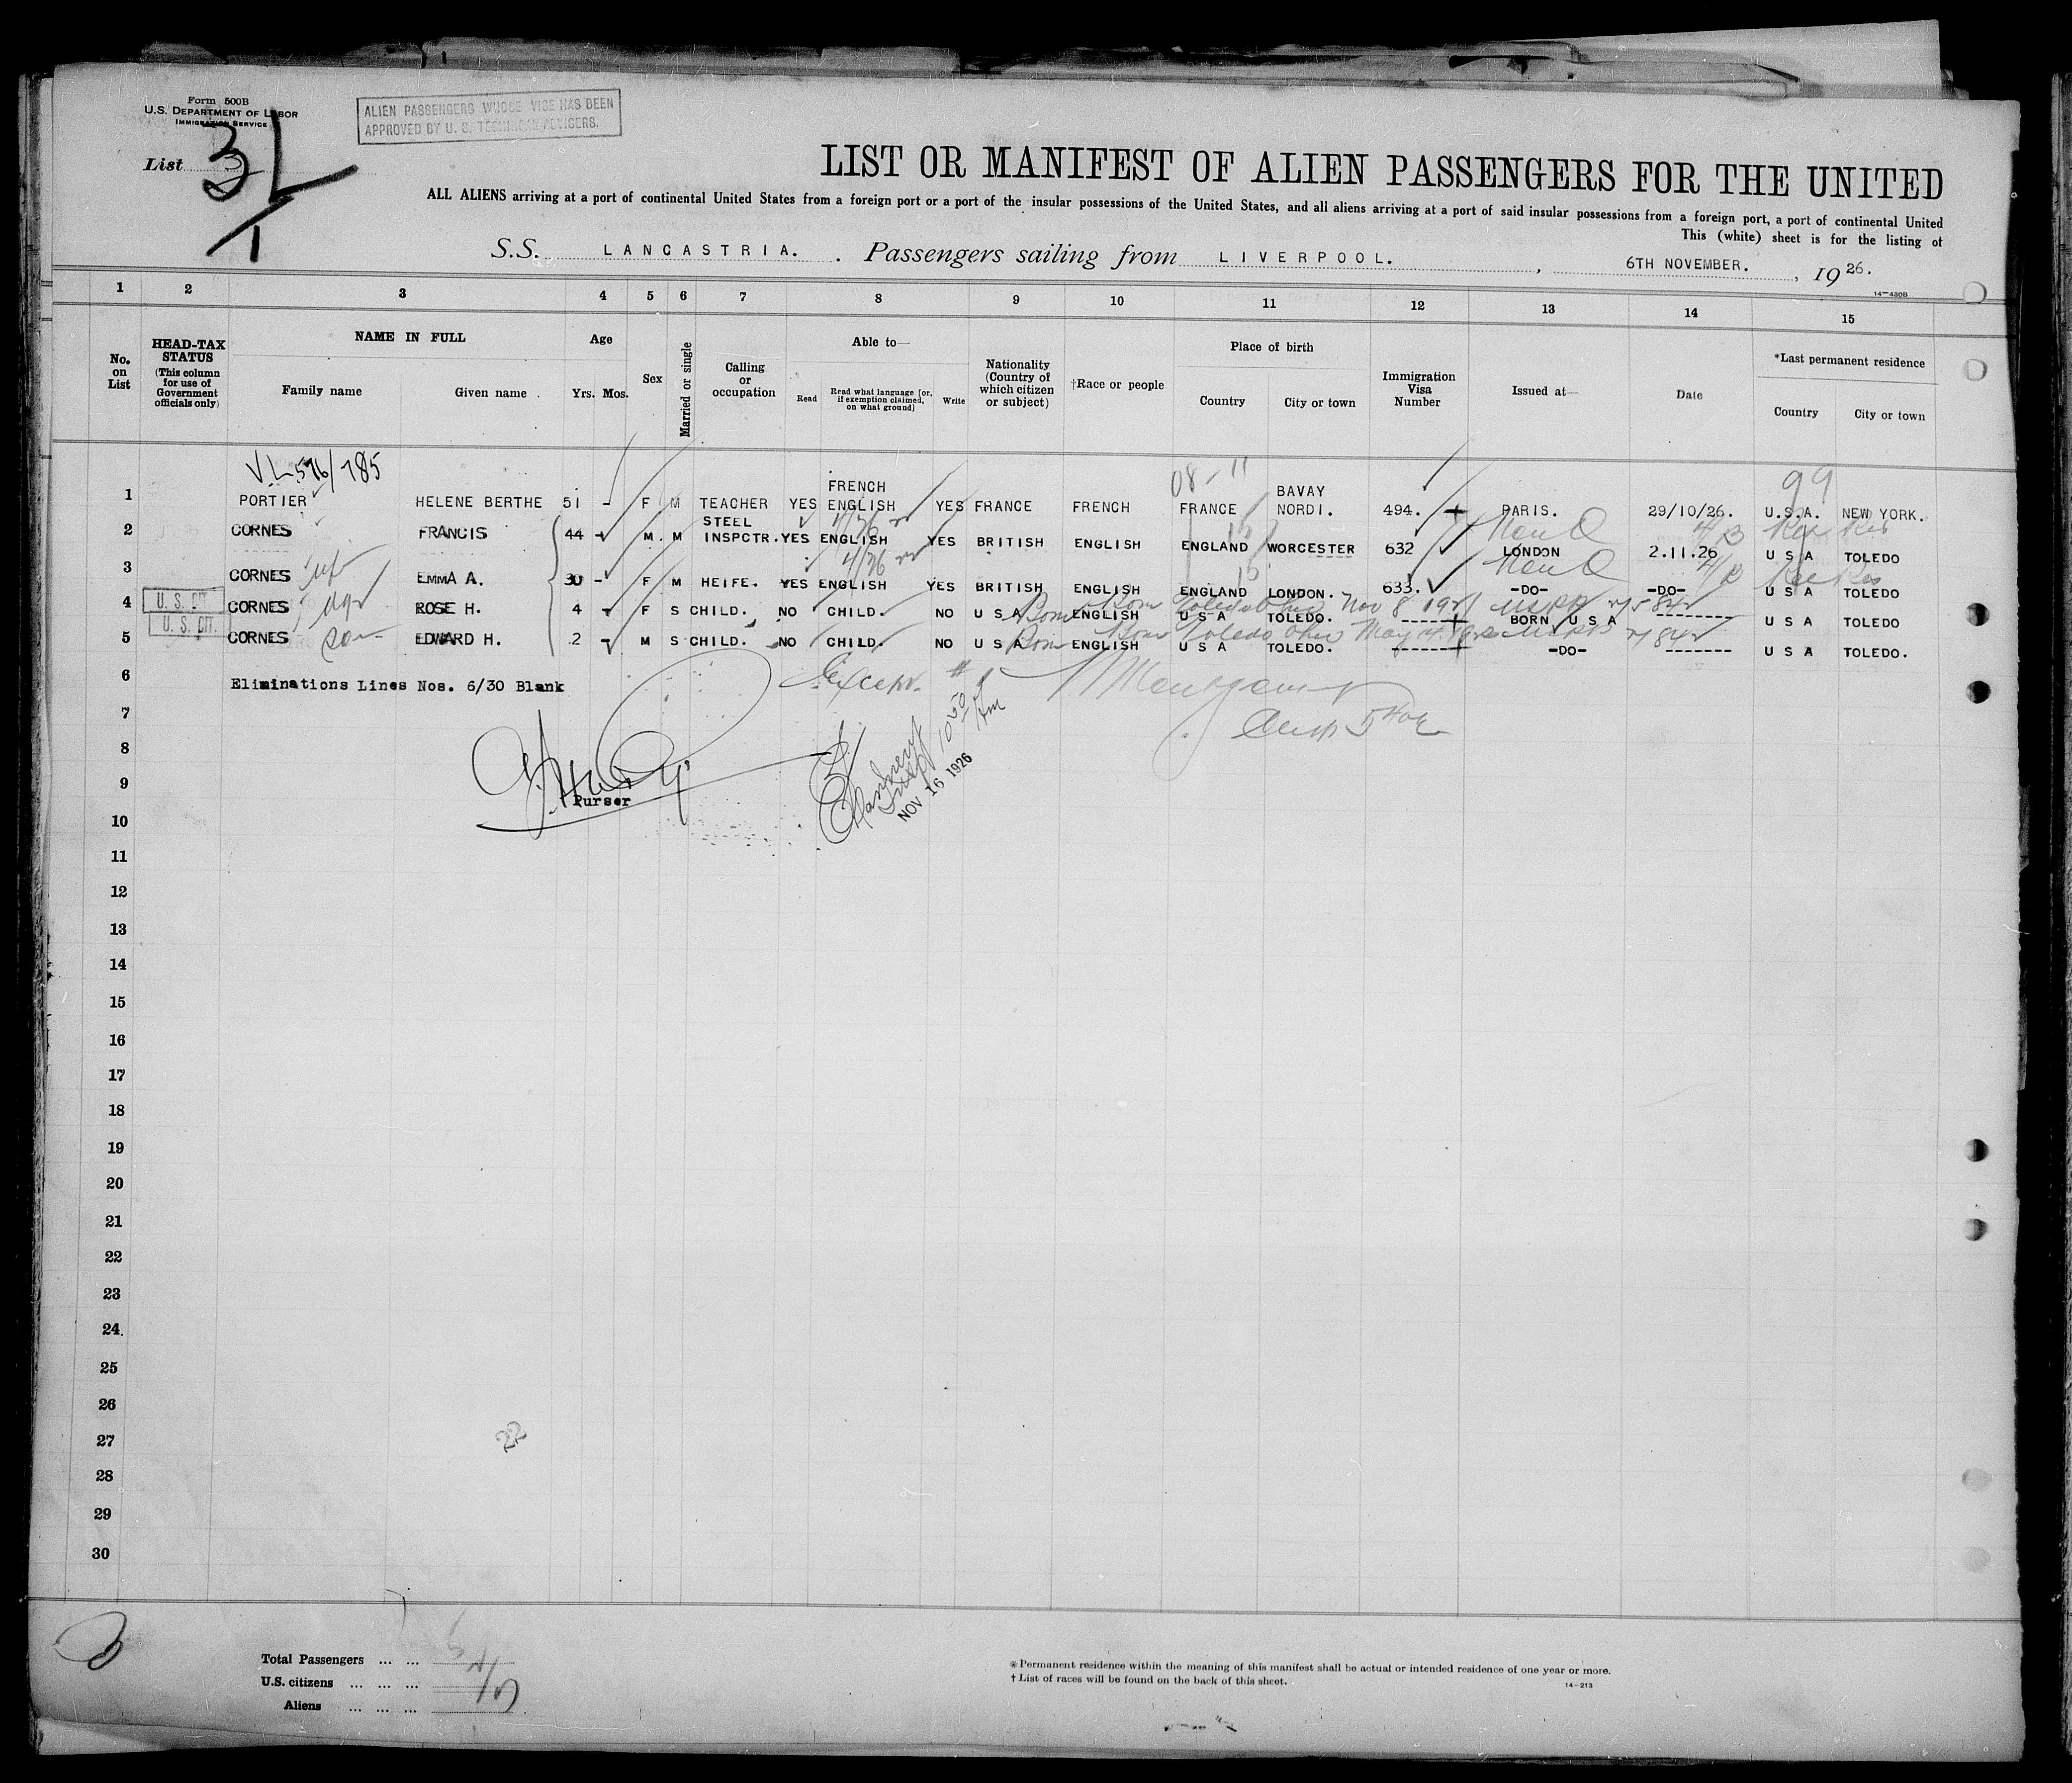 Form 500B
U.S. DEPARTMENT OF LABOR
IMMIGRATION SERVICE
ALIEN PASSENGERS WHOSE VISE HAS BEEN
APPROVED BY U. S. TECHNICAL ADVISERS.
List 3
1
LIST OR MANIFEST OF ALIEN PASSENGERS FOR THE UNITED
ALL ALIENS arriving at a port of continental United States from a foreign port or a port of the insular possessions of the United States, and all aliens arriving at a port of said insular possessions from a foreign port, a port of continental United
This (white) sheet is for the listing of
S.S. LANCASTRIA. Passengers sailing from LIVERPOOL. , 6TH NOVEMBER. , 19 26.
14—430B
1 2 3 4 5 6 7 8 9 10 11 12 13 14 15
No. on List
HEAD-TAX STATUS (This column for use of Government officials only)
NAME IN FULL
Family name Given name
Age
Yrs. Mos.
Sex
Married or single
Calling or occupation
Able to—
Read
Read what language [or, if exemption claimed, on what ground]
Write
Nationality (Country of which citizen or subject)
†Race or people
Place of birth
Country City or town
Immigration Visa Number
Issued at—
Date
*Last permanent residence
Country City or town
V.L. 576/785
08-11
99
1 PORTIER HELENE BERTHE 51 - F M TEACHER YES FRENCH ENGLISH YES FRANCE FRENCH FRANCE BAVAY NORDI. 494. PARIS. 29/10/26. U.S.A. NEW YORK.
2 CORNES FRANCIS 44 - M. M STEEL INSPCTR. YES ENGLISH YES BRITISH ENGLISH ENGLAND WORCESTER 632 LONDON 2.11.26 U S A TOLEDO
3 CORNES EMMA A. 30 - F M HEIFE. YES ENGLISH YES BRITISH ENGLISH ENGLAND LONDON. 633. -DO- -DO- U S A TOLEDO
4 U. S. CIT. CORNES ROSE H. 4 - F S CHILD. NO CHILD. NO U S A ENGLISH U S A TOLEDO. ------ BORN U S A ------- U S A TOLEDO
Born Toledo Ohio Nov 8 1921
5 U. S. CIT. CORNES son EDWARD H. 2 - M S CHILD. NO CHILD. NO U S A ENGLISH U S A TOLEDO. ------ -DO- ------- U S A TOLEDO.
Born Toledo Ohio May
6 Eliminations Lines Nos. 6/30 Blank
7
8
9
Purser
NOV 16 1926
10
11
12
13
14
15
16
17
18
19
20
21
22
23
24
25
26
27
22
28
29
30
Total Passengers ... ...
U.S. citizens ... ... ...
Aliens ... ... ...
* Permanent residence within the meaning of this manifest shall be actual or intended residence of one year or more.
† List of races will be found on the back of this sheet.
14—213